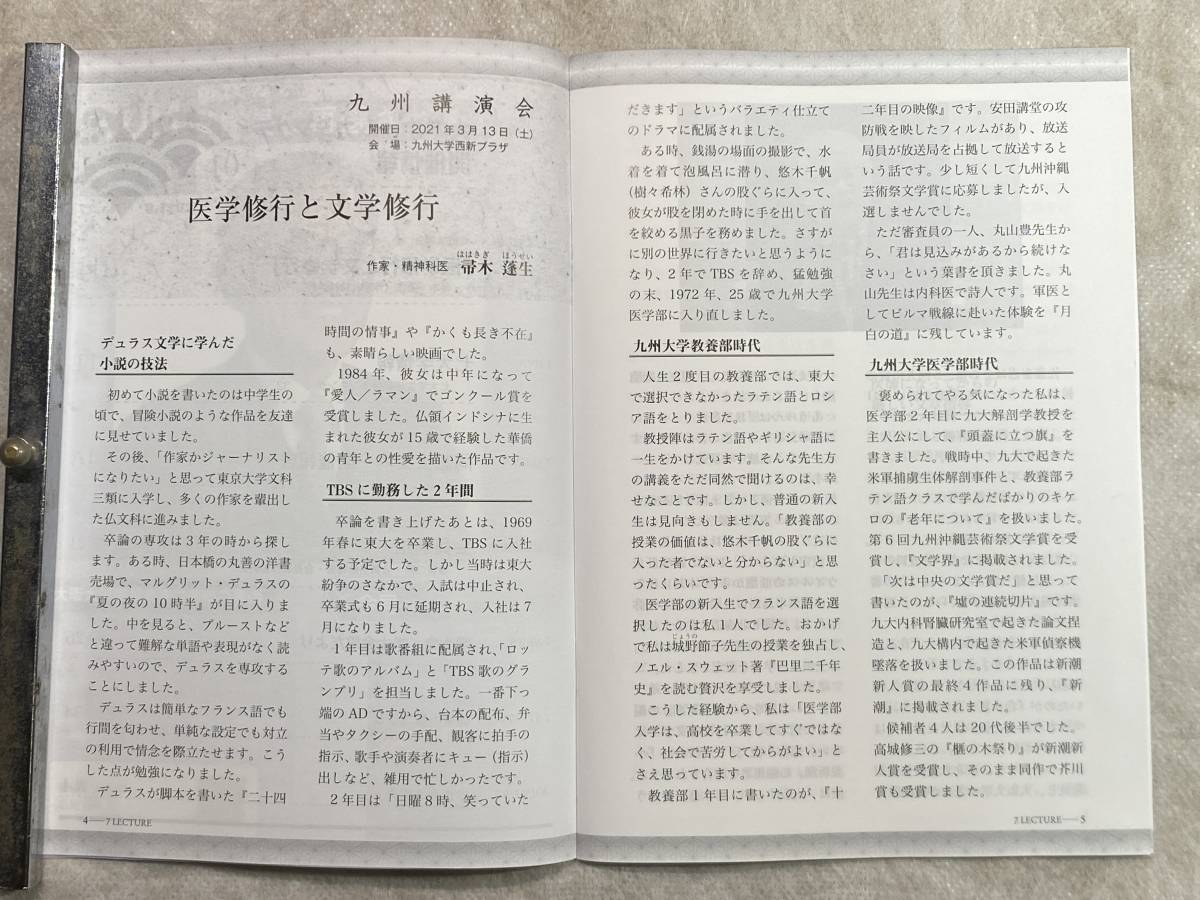 九州講演会
開催日：2021年3月13日（土）
会　場：九州大学西新プラザ
医学修行と文学修行
作家・精神科医 帚木 蓬生
ははきぎ ほうせい
デュラス文学に学んだ
小説の技法
初めて小説を書いたのは中学生の
頃で、冒険小説のような作品を友達
に見せていました。
その後、「作家かジャーナリスト
になりたい」と思って東京大学文科
三類に入学し、多くの作家を輩出し
た仏文科に進みました。
卒論の専攻は3年の時から探し
ます。ある時、日本橋の丸善の洋書
売場で、マルグリット・デュラスの
『夏の夜の10時半』が目に入りま
した。中を見ると、プルーストなど
と違って難解な単語や表現がなく読
みやすいので、デュラスを専攻する
ことにしました。
デュラスは簡単なフランス語でも
行間を匂わせ、単純な設定でも対立
の利用で情念を際立たせます。こう
した点が勉強になりました。
デュラスが脚本を書いた『二十四
時間の情事』や『かくも長き不在』
も、素晴らしい映画でした。
1984年、彼女は中年になって
『愛人／ラマン』でゴンクール賞を
受賞しました。仏領インドシナに生
まれた彼女が15歳で経験した華僑
の青年との性愛を描いた作品です。
TBSに勤務した2年間
卒論を書き上げたあとは、1969
年春に東大を卒業し、TBSに入社
する予定でした。しかし当時は東大
紛争のさなかで、入試は中止され、
卒業式も6月に延期され、入社は7
月になりました。
1年目は歌番組に配属され、「ロッ
テ歌のアルバム」と「TBS歌のグラ
ンプリ」を担当しました。一番下っ
端のADですから、台本の配布、弁
当やタクシーの手配、観客に拍手の
指示、歌手や演奏者にキュー（指示）
出しなど、雑用で忙しかったです。
2年目は「日曜8時、笑っていた
4──7 LECTURE
だきます」というバラエティ仕立て
のドラマに配属されました。
ある時、銭湯の場面の撮影で、水
着を着て泡風呂に潜り、悠木千帆
（樹々希林）さんの股ぐらに入って、
彼女が股を閉めた時に手を出して首
を絞める黒子を務めました。さすが
に別の世界に行きたいと思うように
なり、2年でTBSを辞め、猛勉強
の末、1972年、25歳で九州大学
医学部に入り直しました。
九州大学教養部時代
人生2度目の教養部では、東大
で選択できなかったラテン語とロシ
ア語をとりました。
教授陣はラテン語やギリシャ語に
一生をかけています。そんな先生方
の講義をただ同然で聞けるのは、幸
せなことです。しかし、普通の新入
生は見向きもしません。「教養部の
授業の価値は、悠木千帆の股ぐらに
入った者でないと分からない」と思
ったくらいです。
医学部の新入生でフランス語を選
択したのは私1人でした。おかげ
で私は城野節子先生の授業を独占し、
じょうの
ノエル・スウェット著『巴里二千年
史』を読む贅沢を享受しました。
こうした経験から、私は「医学部
入学は、高校を卒業してすぐではな
く、社会で苦労してからがよい」と
さえ思っています。
教養部1年目に書いたのが、『十
二年目の映像』です。安田講堂の攻
防戦を映したフィルムがあり、放送
局員が放送局を占拠して放送すると
いう話です。少し短くして九州沖縄
芸術祭文学賞に応募しましたが、入
選しませんでした。
ただ審査員の一人、丸山豊先生か
ら、「君は見込みがあるから続けな
さい」という葉書を頂きました。丸
山先生は内科医で詩人です。軍医と
してビルマ戦線に赴いた体験を『月
白の道』に残しています。
九州大学医学部時代
褒められてやる気になった私は、
医学部2年目に九大解剖学教授を
主人公にして、『頭蓋に立つ旗』を
書きました。戦時中、九大で起きた
米軍捕虜生体解剖事件と、教養部ラ
テン語クラスで学んだばかりのキケ
ロの『老年について』を扱いました。
第6回九州沖縄芸術祭文学賞を受
賞し、『文学界』に掲載されました。
「次は中央の文学賞だ」と思って
書いたのが、『墟の連続切片』です。
九大内科腎臓研究室で起きた論文捏
造と、九大構内で起きた米軍偵察機
墜落を扱いました。この作品は新潮
新人賞の最終4作品に残り、『新
潮』に掲載されました。
候補者4人は20代後半でした。
高城修三の『榧の木祭り』が新潮新
人賞を受賞し、そのまま同作で芥川
賞も受賞しました。
7 LECTURE──5